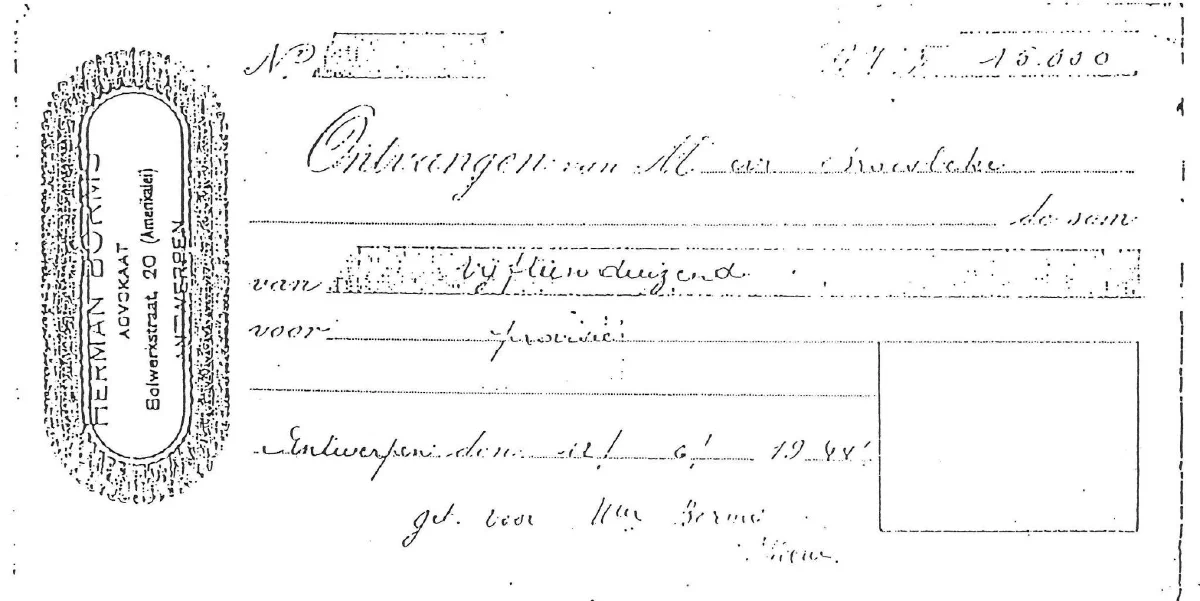 HERMAN BORMS
ADVOKAAT
Bolwerkstraat, 20 (Amerikalei)
ANTWERPEN
No
15.000
Ontvangen van M
de som
van vijftienduizend
voor provisie
Antwerpen den 12/ 6/ 1944
get. voor Mter Borms